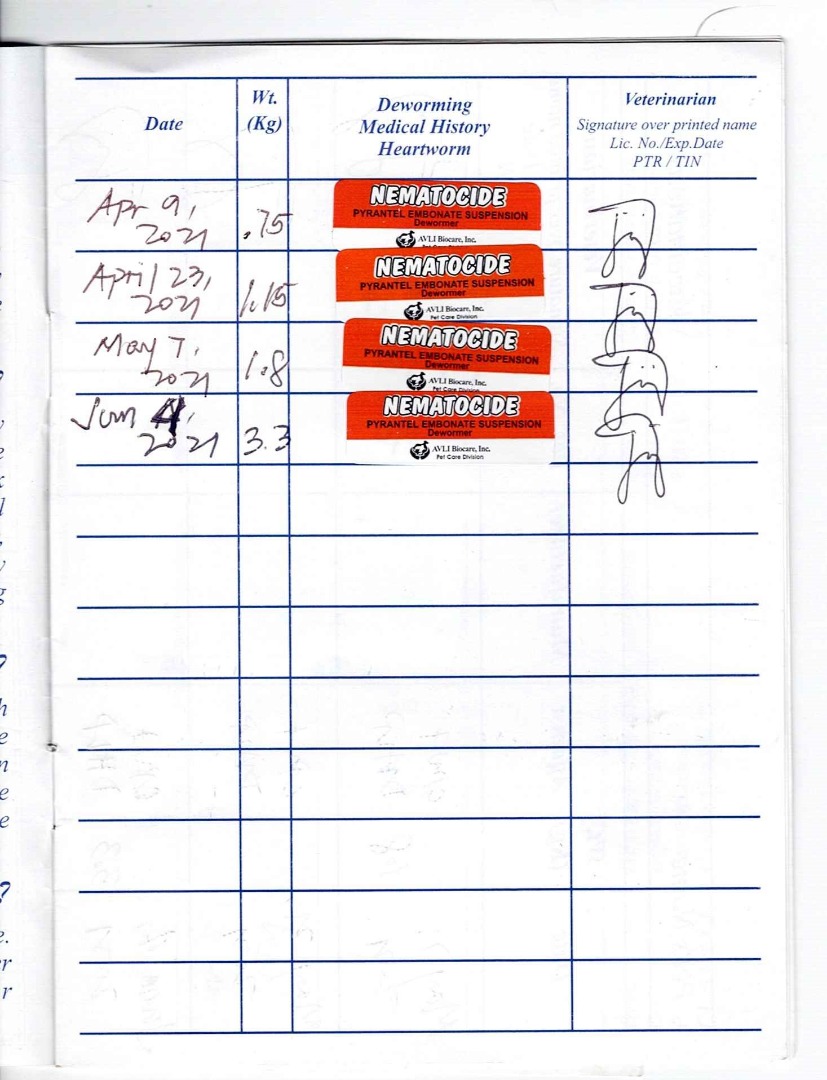 Date
Wt.
(Kg)
Deworming
Medical History
Heartworm
Veterinarian
Signature over printed name
Lic. No./Exp.Date
PTR / TIN
Apr 9,
2021
.75
NEMATOCIDE
PYRANTEL EMBONATE SUSPENSION
Dewormer
AVLI Biocare, Inc.
April 23,
2021
1.15
NEMATOCIDE
PYRANTEL EMBONATE SUSPENSION
Dewormer
AVLI Biocare, Inc.
Pet Care Division
May 7,
2021
1.8
NEMATOCIDE
PYRANTEL EMBONATE SUSPENSION
Dewormer
AVLI Biocare, Inc.
Pet Care Division
Jun 4,
2021
3.3
NEMATOCIDE
PYRANTEL EMBONATE SUSPENSION
Dewormer
AVLI Biocare, Inc.
Pet Care Division